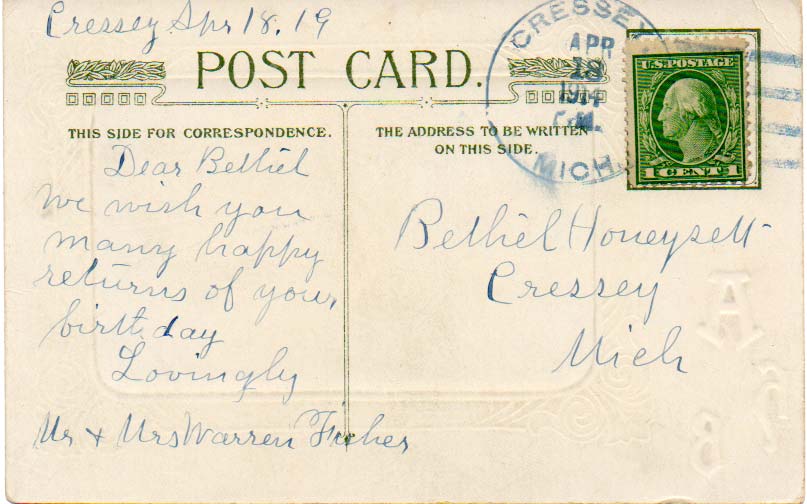 Cressey Apr 18. 19
POST CARD.
CRESSEY
APR
18
1914
MICH.
U.S. POSTAGE
1 CENT 1
THIS SIDE FOR CORRESPONDENCE.
Dear Bethel
We wish you
many happy
returns of your
birth day
Lovingly
Mr & Mrs Warren Fisher
THE ADDRESS TO BE WRITTEN
ON THIS SIDE.
Bethel Honeysett
Cressey
Mich